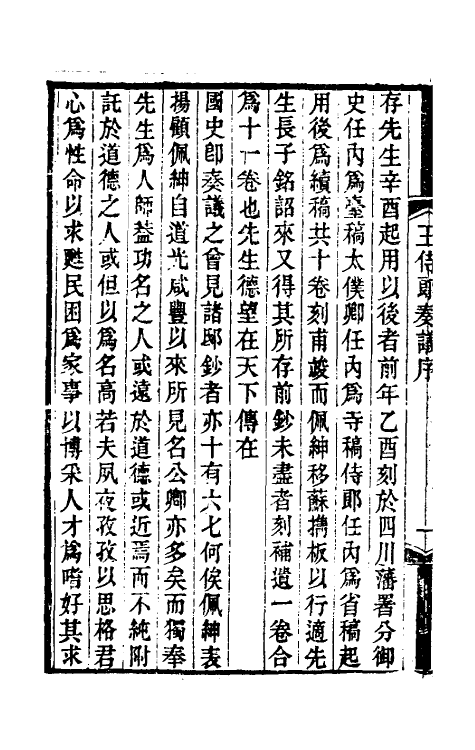 王侍郎奏議序
一
存先生辛酉起用以後者前年乙酉刻於四川藩署分御
史任內爲臺稿太僕卿任內爲寺稿侍郎任內爲省稿起
用後爲續稿共十卷刻甫竣而佩紳移蘇攜板以行適先
生長子銘詔來又得其所存前鈔未盡者刻補遺一卷合
爲十一卷也先生德望在天下傳在
國史卽奏議之曾見諸邸鈔者亦十有六七何俟佩紳表
揚顧佩紳自道光咸豐以來所見名公卿亦多矣而獨奉
先生爲人師葢功名之人或遠於道德或近焉而不純附
託於道德之人或但以爲名高若夫夙夜孜孜以思格君
心爲性命以求甦民困爲家事以博采人才爲嗜好其求